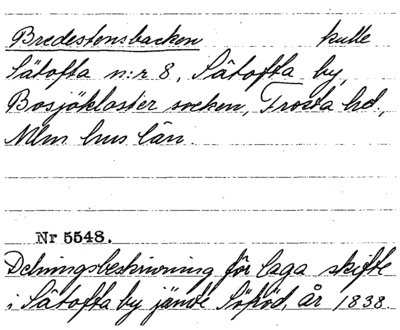 Bredestensbacken kulle
Sätofta n:r 8, Sätofta by,
Bosjökloster socken, Frosta hd.,
Mlm hus län.
Nr 5548.
Delningsbeskrivning för laga skifte
i Sätofta by jämte Sjöröd, år 1838.